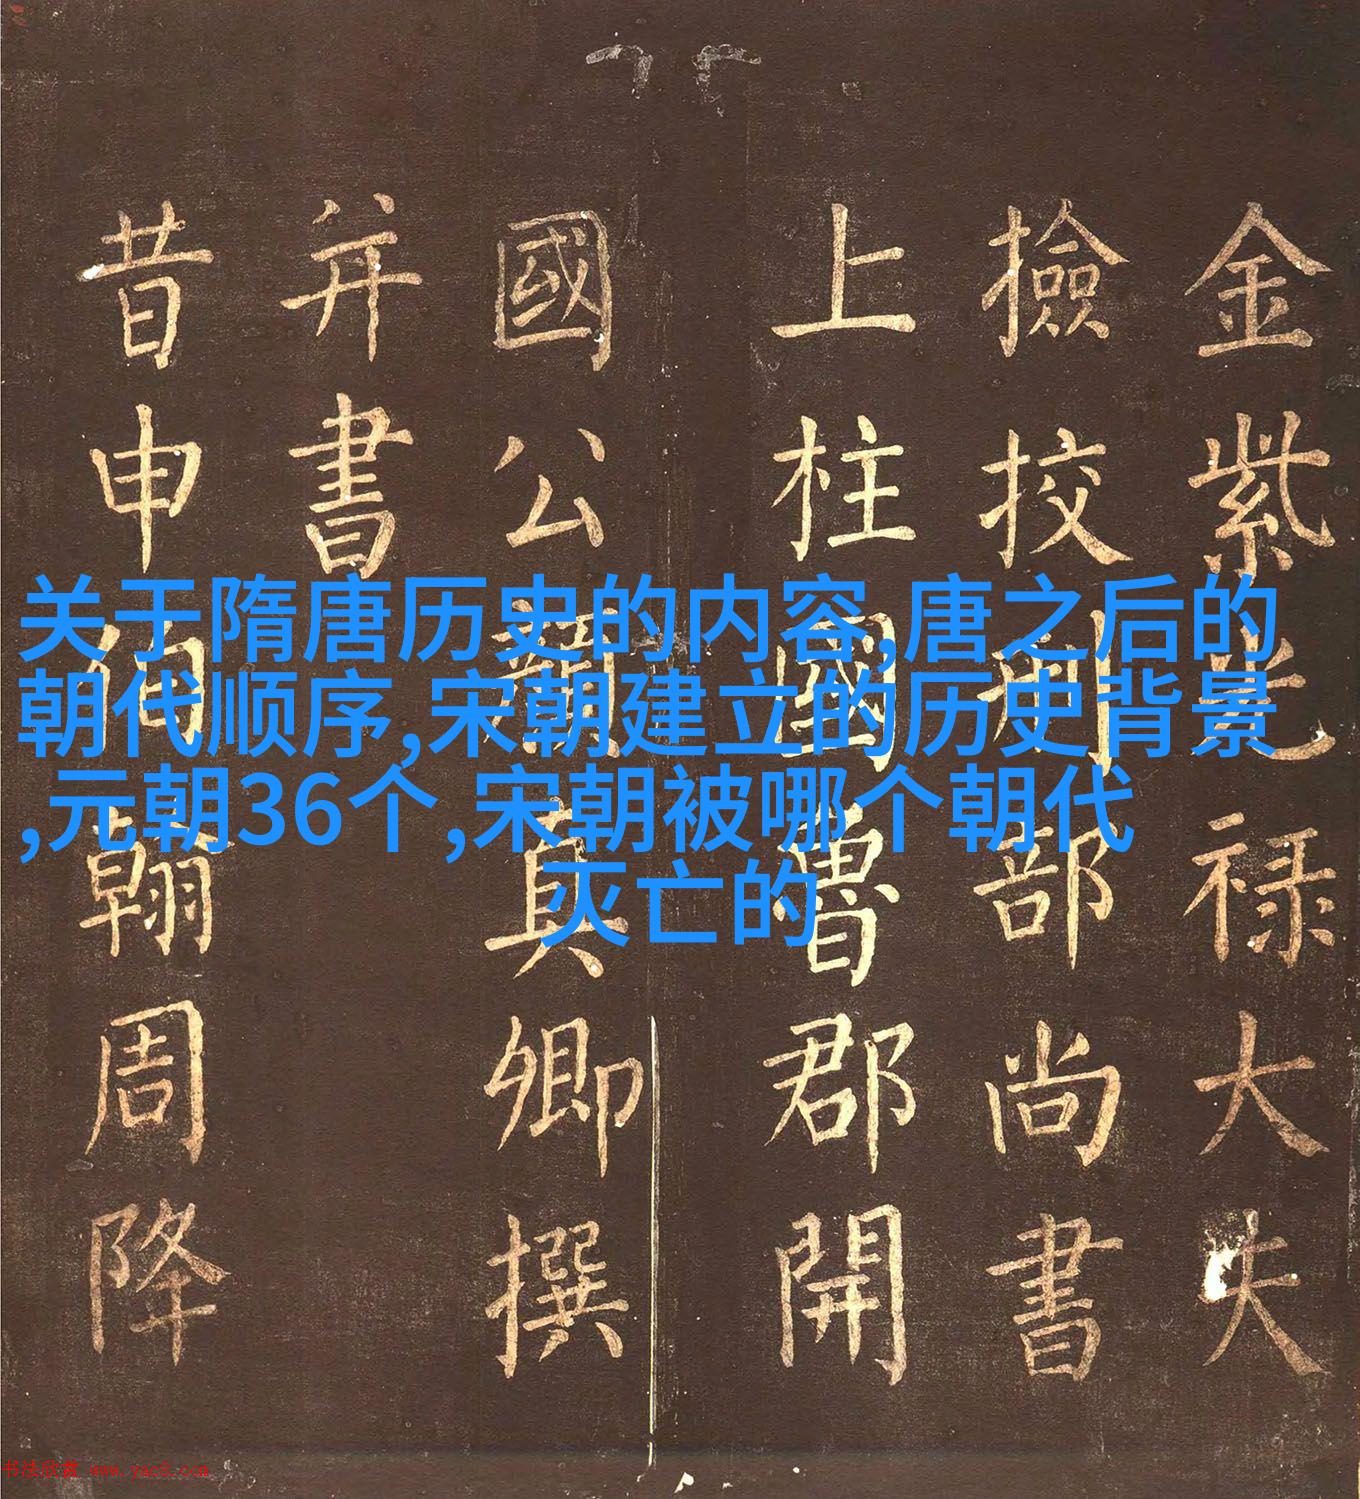 金紫光禄大夫
撿挍刑部尚書
上柱國魯郡開
國公顏真卿撰
并書
昔申伯翰周降
关于隋唐历史的内容,唐之后的
朝代顺序,宋朝建立的历史背景
,元朝36个,宋朝被哪个朝代
灭亡的
书法欣赏 www.yac8.com